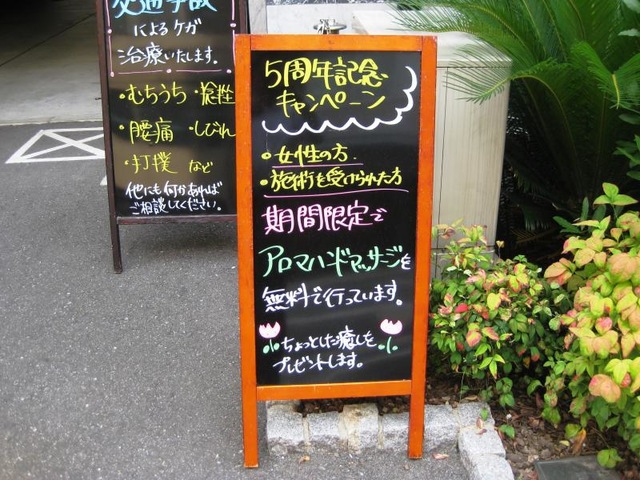 交通事故
によるケガ
治療いたします。
・むちうち・捻挫
・腰痛・しびれ
・打撲 など
他にも何かあれば
ご相談してください。
5周年記念
キャンペーン
・女性の方
・施術を受けられた方
期間限定で
アロマハンドマッサージを
無料で行っています。
ちょっとした癒しを
プレゼントします。